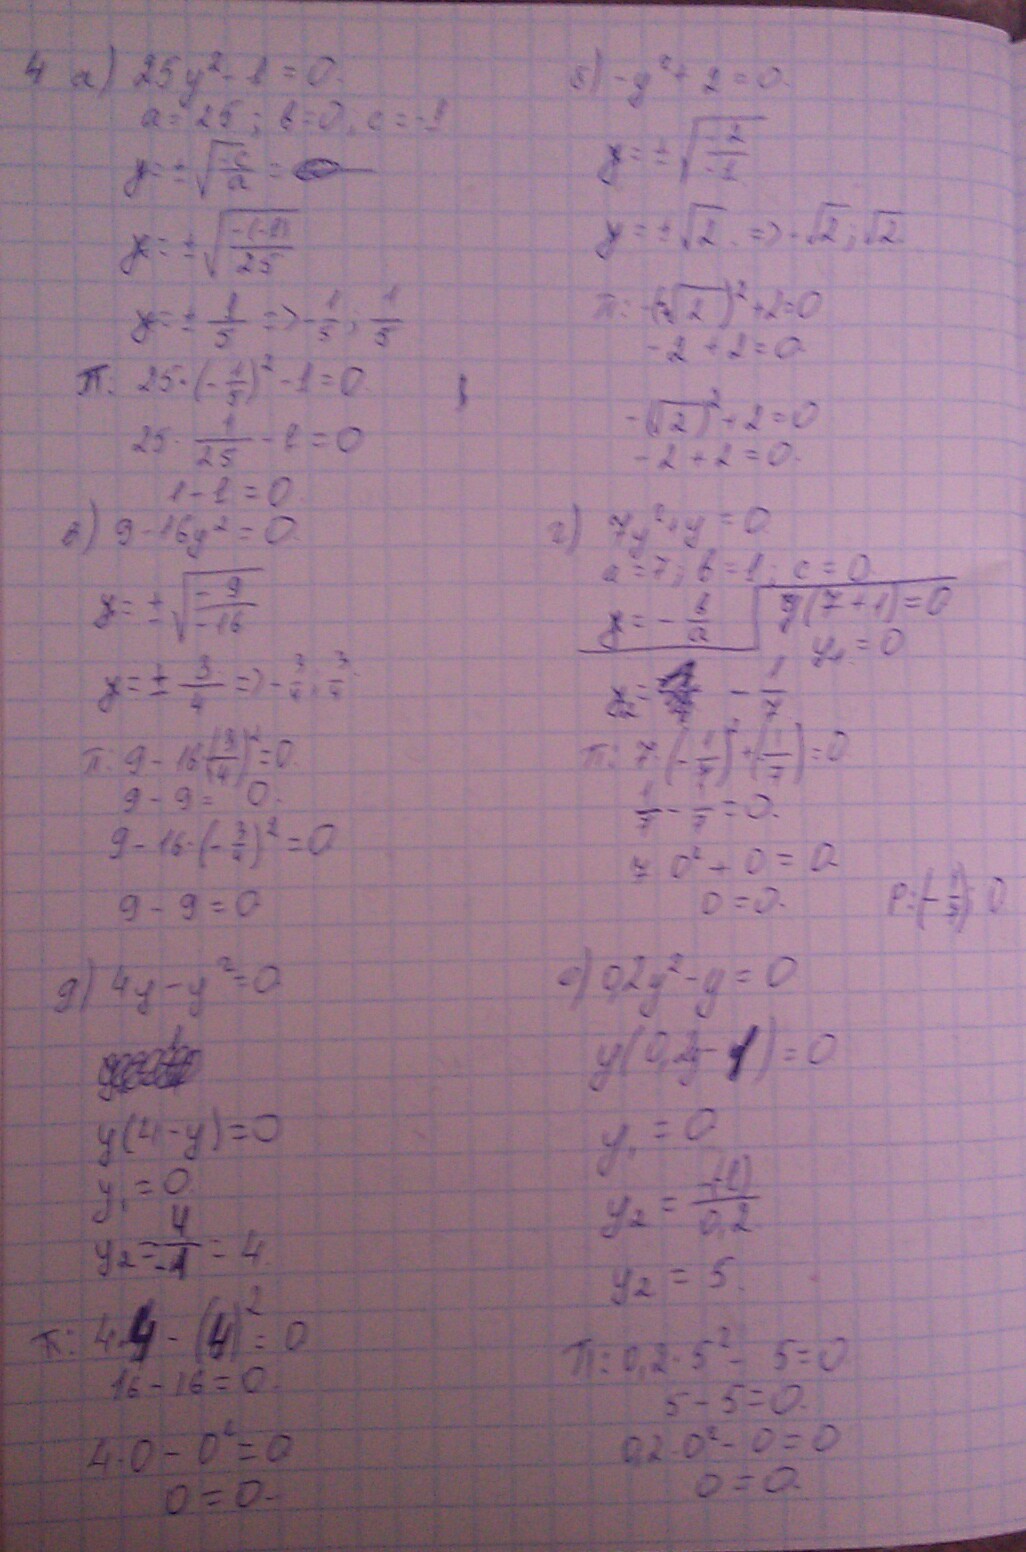 4 а) 25y² - 1 = 0.
a = 25; b = 0; c = -1
y = ± √(-c/a) =
y = ± √(-(-1)/25)
y = ± 1/5 => -1/5; 1/5
П: 25·(-1/5)² - 1 = 0
25 · 1/25 - 1 = 0
1 - 1 = 0
б) -y² + 2 = 0.
y = ± √2 => -√2; √2
-2 + 2 = 0
-(√2)² + 2 = 0
-2 + 2 = 0.
в) 9 - 16y² = 0.
y = ± √(-9/-16)
y = ± 3/4 => -3/4; 3/4
П: 9 - 16(3/4)² = 0.
9 - 9 = 0.
9 - 16·(-3/4)² = 0
9 - 9 = 0
г) 7y² + y = 0
a = 7; b = 1; c = 0.
y = - b/a
y(7 + 1) = 0
y₁ = 0
y₂ = - 1/7
П: 7·(-1/7)² + (-1/7) = 0
1/7 - 1/7 = 0.
7 0² + 0 = 0
0 = 0.
д) 4y - y² = 0
y(4 - y) = 0
y₁ = 0
y₂ = 4/-1 = 4.
П: 4·4 - (4)² = 0
16 - 16 = 0.
4·0 - 0² = 0
0 = 0.
е) 0,2y² - y = 0
y(0,2y - 1) = 0
y₁ = 0
y₂ = -(-1)/0,2
y₂ = 5.
П: 0,2·5² - 5 = 0
5 - 5 = 0.
0,2·0² - 0 = 0
0 = 0.